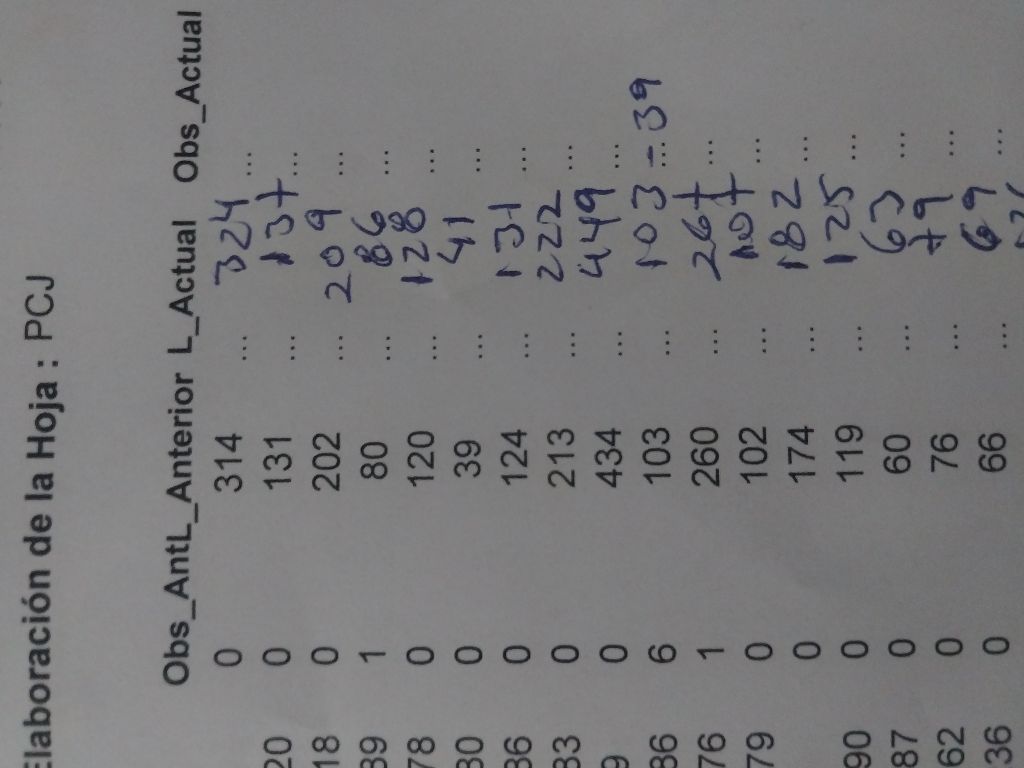 Elaboración de la Hoja : PCJ
Obs_AntL_Anterior L_Actual Obs_Actual
0 314 ... 324 ...
20 0 131 ... 137 ...
18 0 202 ... 209 ...
39 1 80 ... 86 ...
78 0 120 ... 128 ...
30 0 39 ... 41 ...
36 0 124 ... 131 ...
33 0 213 ... 222 ...
9 0 434 ... 449 ...
86 6 103 ... 103 ... - 39
76 1 260 ... 267 ...
79 0 102 ... 107 ...
0 174 ... 182 ...
90 0 119 ... 125 ...
87 0 60 ... 63 ...
62 0 76 ... 79 ...
36 0 66 ... 69 ...